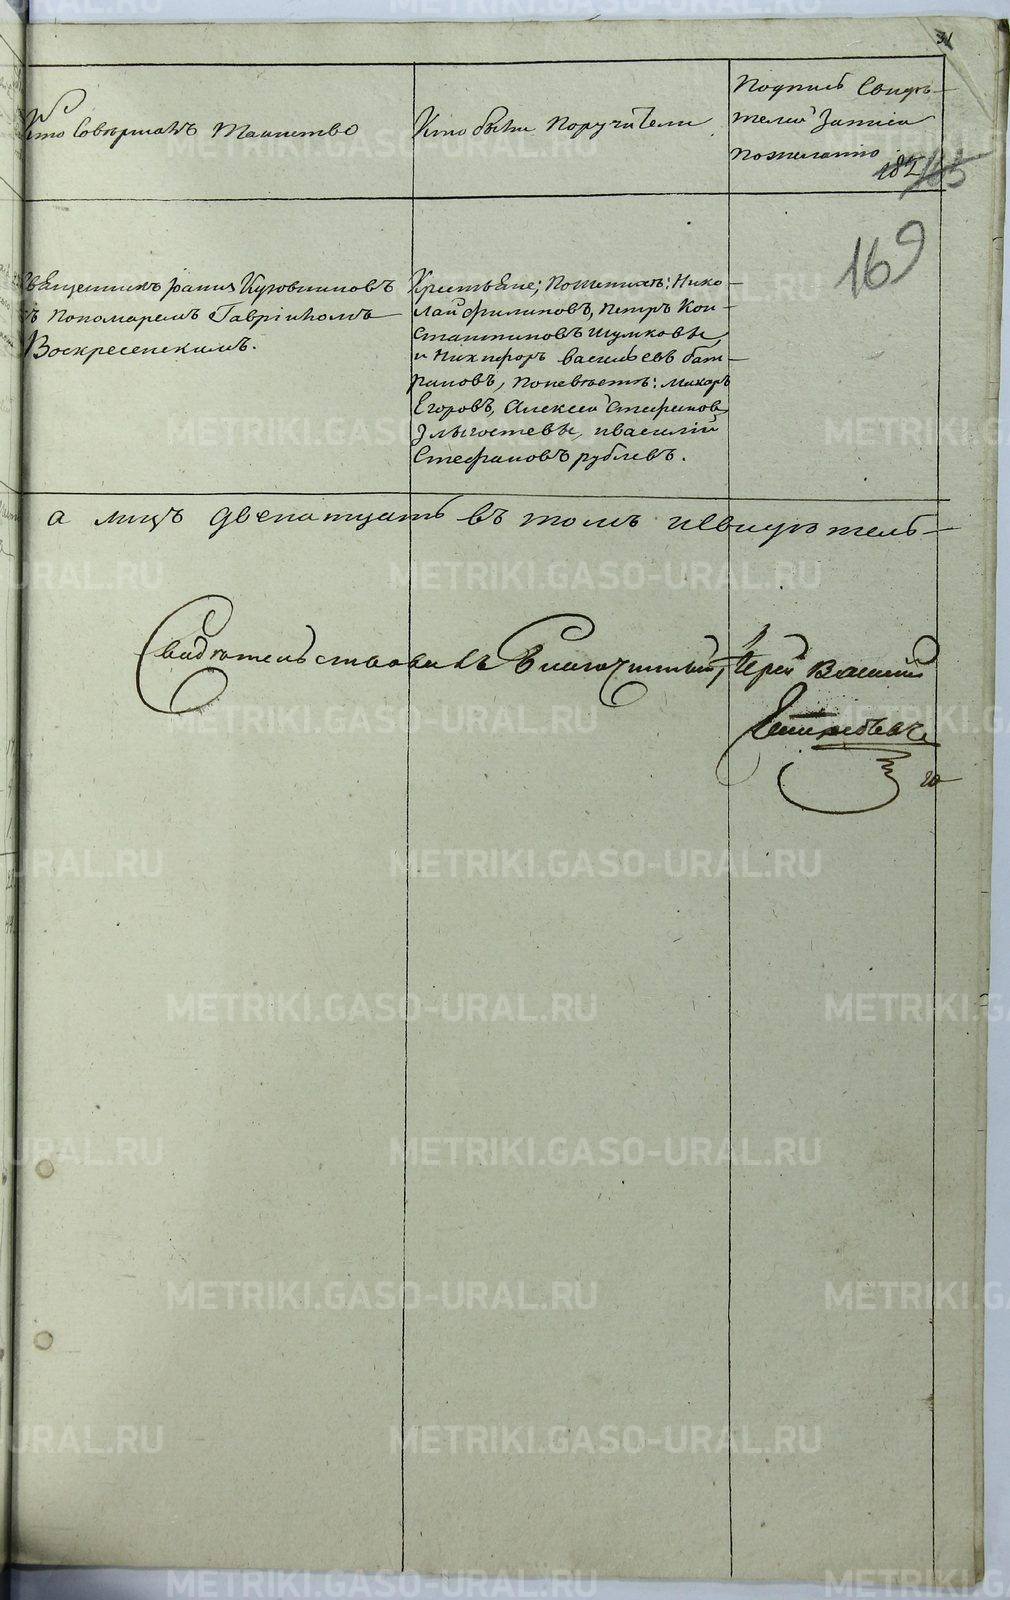 31
Кто Совершалъ Таинство
Кто были Поручители
Подпись Свидѣ-
телей Записи
по желанію
182
165
169
Священникъ Іоаннъ
съ Пономаремъ Гавріиломъ
Воскресенскимъ.
Крестьяне; По женихѣ: Нико-
лай Филиповъ, Петръ Кон-
стантиновъ Шумковы,
и Никифоръ Васильевъ Бат-
раковъ, По невѣстѣ: Макаръ
Егоровъ, Алексей Стефановъ
Злыгостевы, и Василій
Стефановъ Рублевъ.
а лицъ двенатцать въ томъ и свидѣтель-
Свидѣтельствовалъ Благочинный, Іерей Василій
METRIKI.GASO-URAL.RU